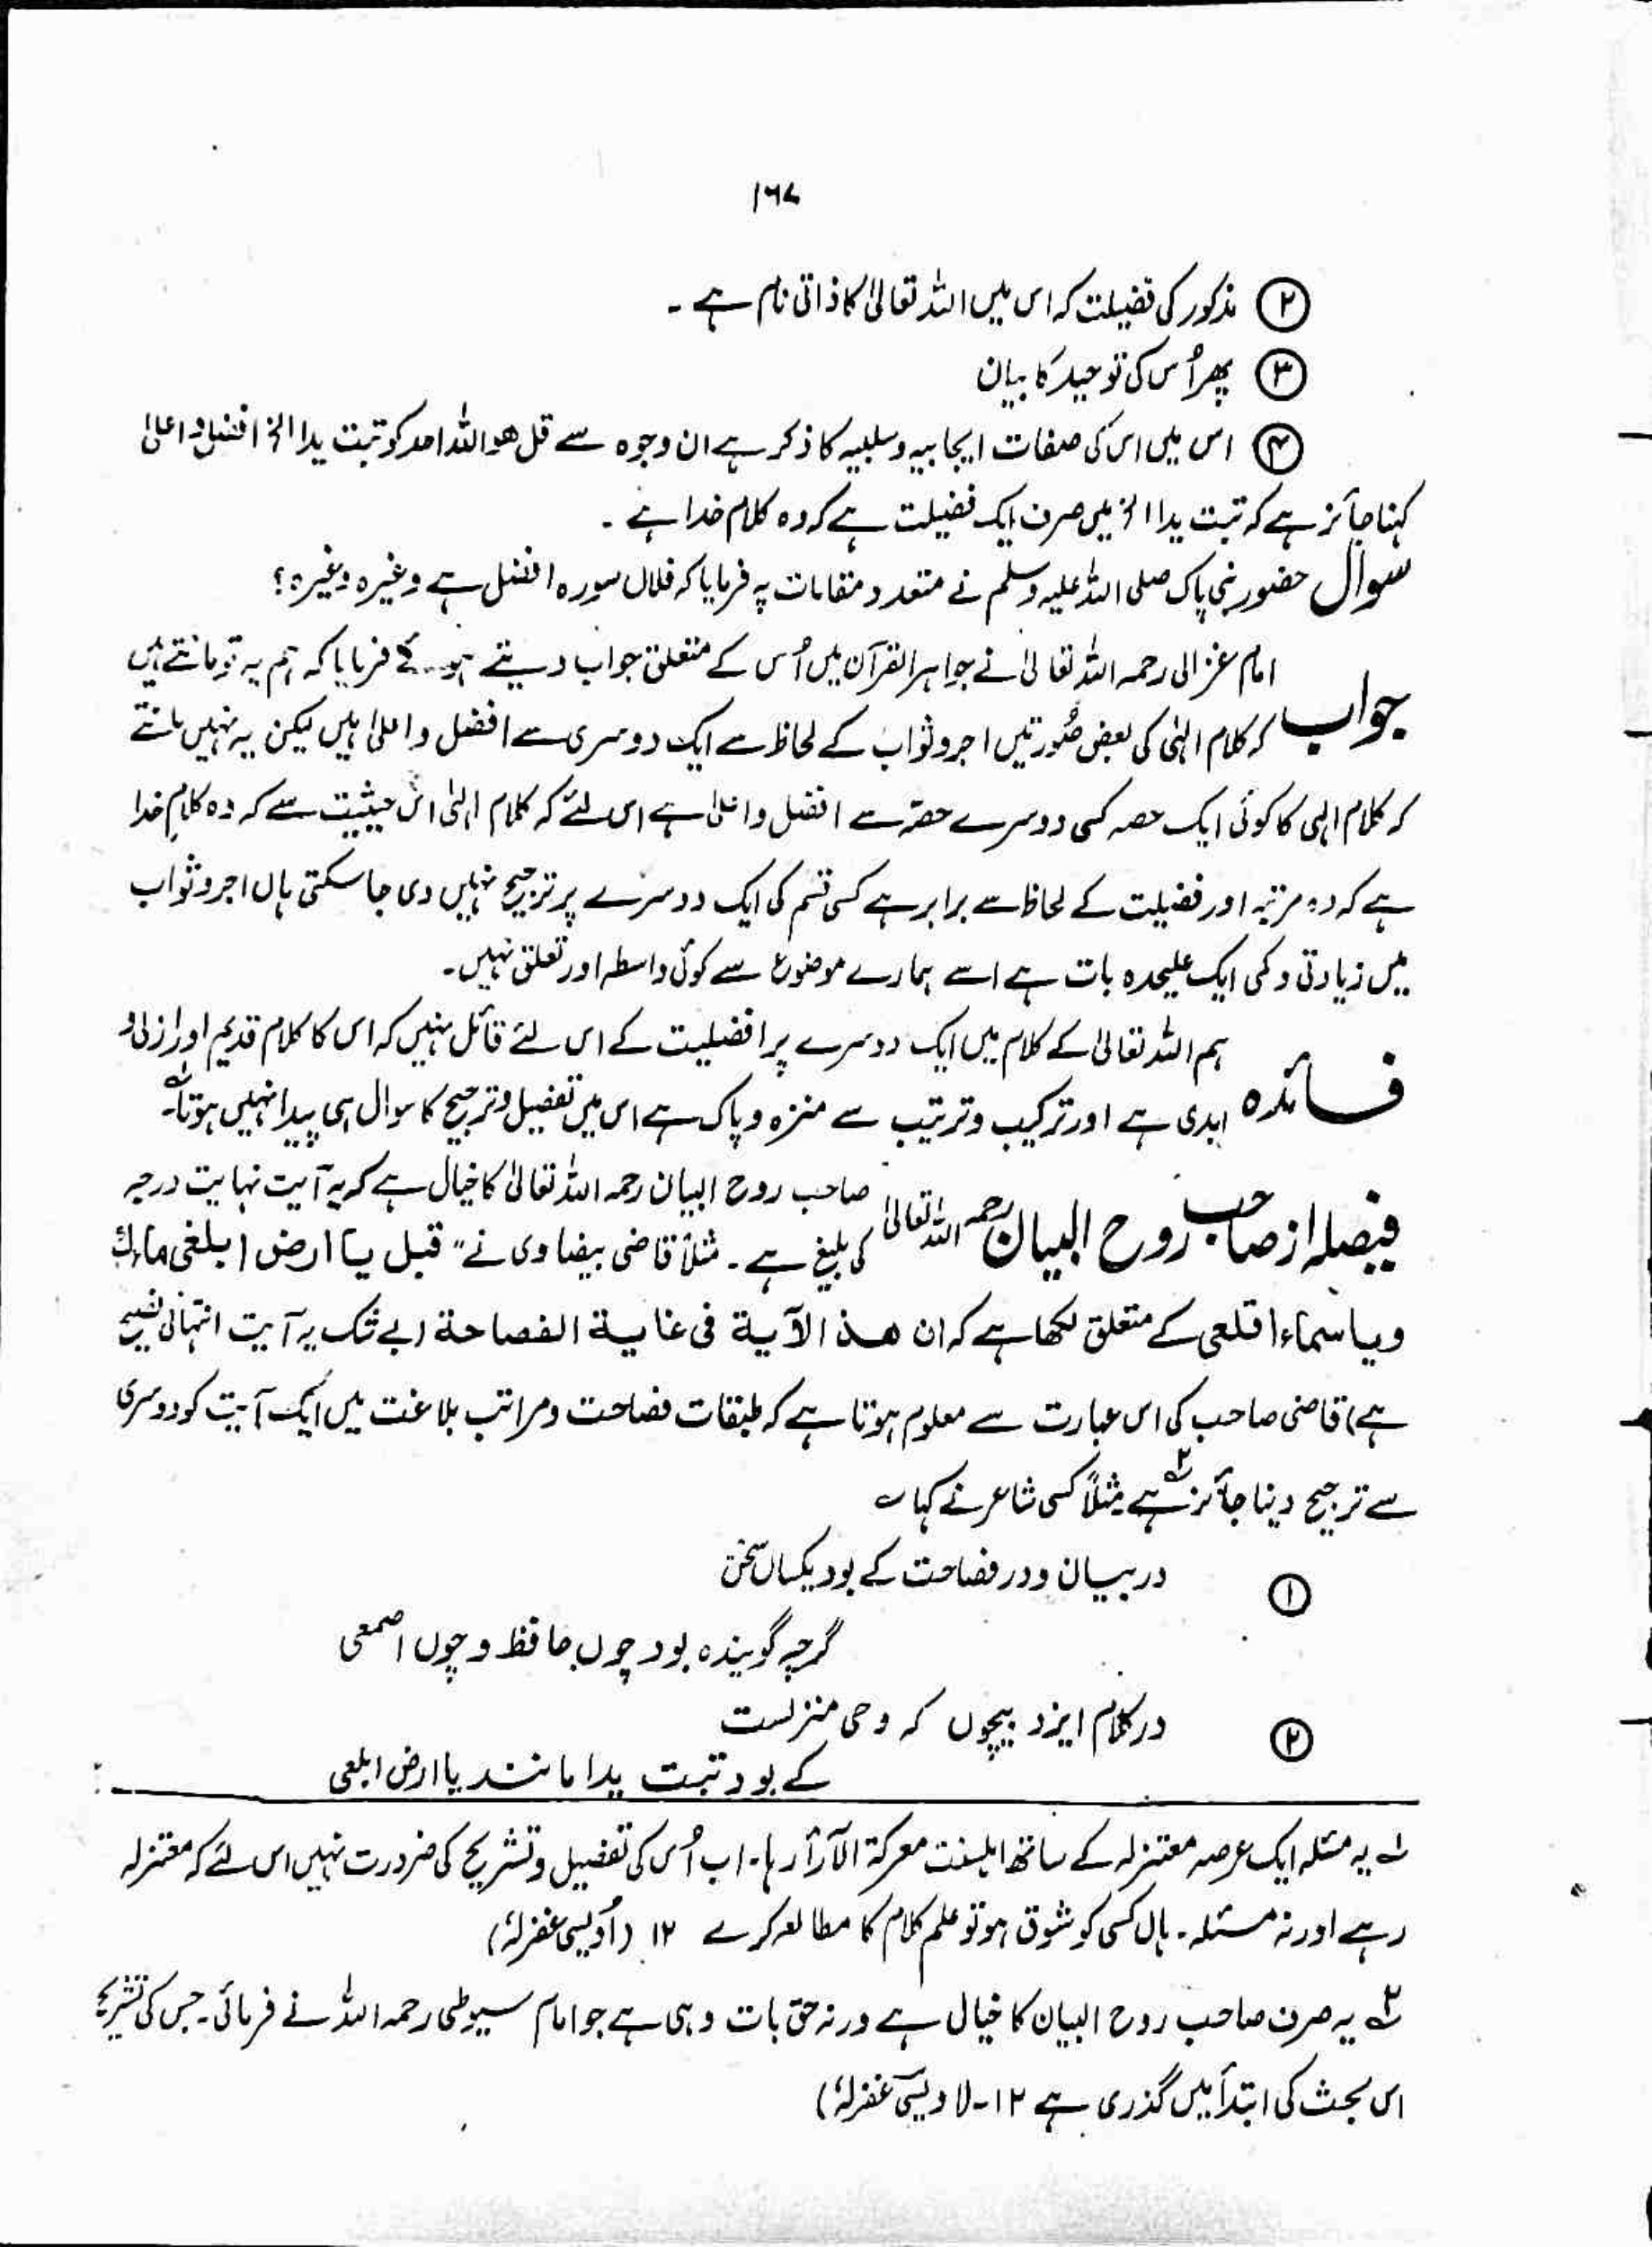 ۱۶۷
② مذکور کی فضیلت کہ اس میں اللہ تعالیٰ کا ذاتی نام ہے ۔
③ پھر اُس کی توحید کا بیان
④ اس میں اس کی صفات ایجابیہ و سلبیہ کا ذکر ہے ان وجوہ سے قل ھو اللہ احد کو تبت یدا الخ افضل و اعلیٰ
کہنا جائز ہے کہ تبت یدا الخ میں صرف ایک فضیلت ہے کہ وہ کلام خدا ہے ۔
سوال حضور نبی پاک صلی اللہ علیہ وسلم نے متعدد مقامات پہ فرمایا کہ فلاں سورہ افضل ہے وغیرہ وغیرہ ؟
جواب امام غزالی رحمہ اللہ تعالیٰ نے جواہر القرآن میں اُس کے متعلق جواب دیتے ہوئے فرمایا کہ ہم یہ تو مانتے ہیں
کہ کلام الٰہی کی بعض صُورتیں اجر و ثواب کے لحاظ سے ایک دوسری سے افضل و اعلیٰ ہیں لیکن یہ نہیں مانتے
کہ کلام الٰہی کا کوئی ایک حصہ کسی دوسرے حصّہ سے افضل و اعلیٰ ہے اس لئے کہ کلام الٰہی اس حیثیت سے کہ وہ کلامِ خدا
ہے کہ وہ مرتبہ اور فضیلت کے لحاظ سے برابر ہے کسی قسم کی ایک دوسرے پر ترجیح نہیں دی جا سکتی ہاں اجر و ثواب
میں زیادتی و کمی ایک علیحدہ بات ہے اسے ہمارے موضوع سے کوئی واسطہ اور تعلق نہیں ۔
فائدہ ہم اللہ تعالیٰ کے کلام میں ایک دوسرے پر افضلیت کے اس لئے قائل نہیں کہ اس کا کلام قدیم اور ازلی و
ابدی ہے اور ترکیب و ترتیب سے منزہ و پاک ہے اس میں تفضیل و ترجیح کا سوال ہی پیدا نہیں ہوتا ۱؎
فیصلہ از صاحب روح البیان رحمہ اللہ تعالیٰ صاحب روح البیان رحمہ اللہ تعالیٰ کا خیال ہے کہ یہ آیت نہایت درجہ
کی بلیغ ہے ۔ مثلاً قاضی بیضاوی نے " قبل یا ارض ابلغی ماءك
ویا سماء اقلعی کے متعلق لکھا ہے کہ ان ھذہ الآیة فی غایة الفصاحة (بے شک یہ آیت انتہائی فصیح
ہے) قاضی صاحب کی اس عبارت سے معلوم ہوتا ہے کہ طبقات فصاحت و مراتب بلاغت میں ایک آیت کو دوسری
سے ترجیح دینا جائز ۲؎ ہے مثلاً کسی شاعر نے کہا ؎
① در بیان و در فصاحت کے بود یکساں سخن
گرچہ گویندہ بود چوں حافظ و چوں اصمعی
② در کلام ایزد بیچوں کہ وحی منزلست
کے بود تبت یدا مانند یا ارض ابلعی
۱؎ یہ مسئلہ ایک عرصہ معتزلہ کے ساتھ اہلسنت معرکۃ الآرأ رہا ۔ اب اُس کی تفصیل و تشریح کی ضرورت نہیں اس لئے کہ معتزلہ
رہے اور نہ مسئلہ ۔ ہاں کسی کو شوق ہو تو علم کلام کا مطالعہ کرے ۱۲ (اُویسی غفرلہٗ)
۲؎ یہ صرف صاحب روح البیان کا خیال ہے ورنہ حق بات وہی ہے جو امام سیوطی رحمہ اللہ نے فرمائی ۔ جس کی تشریح
اس بحث کی ابتدأ میں گذری ہے ۱۲ ۔ (اویسی غفرلہٗ)